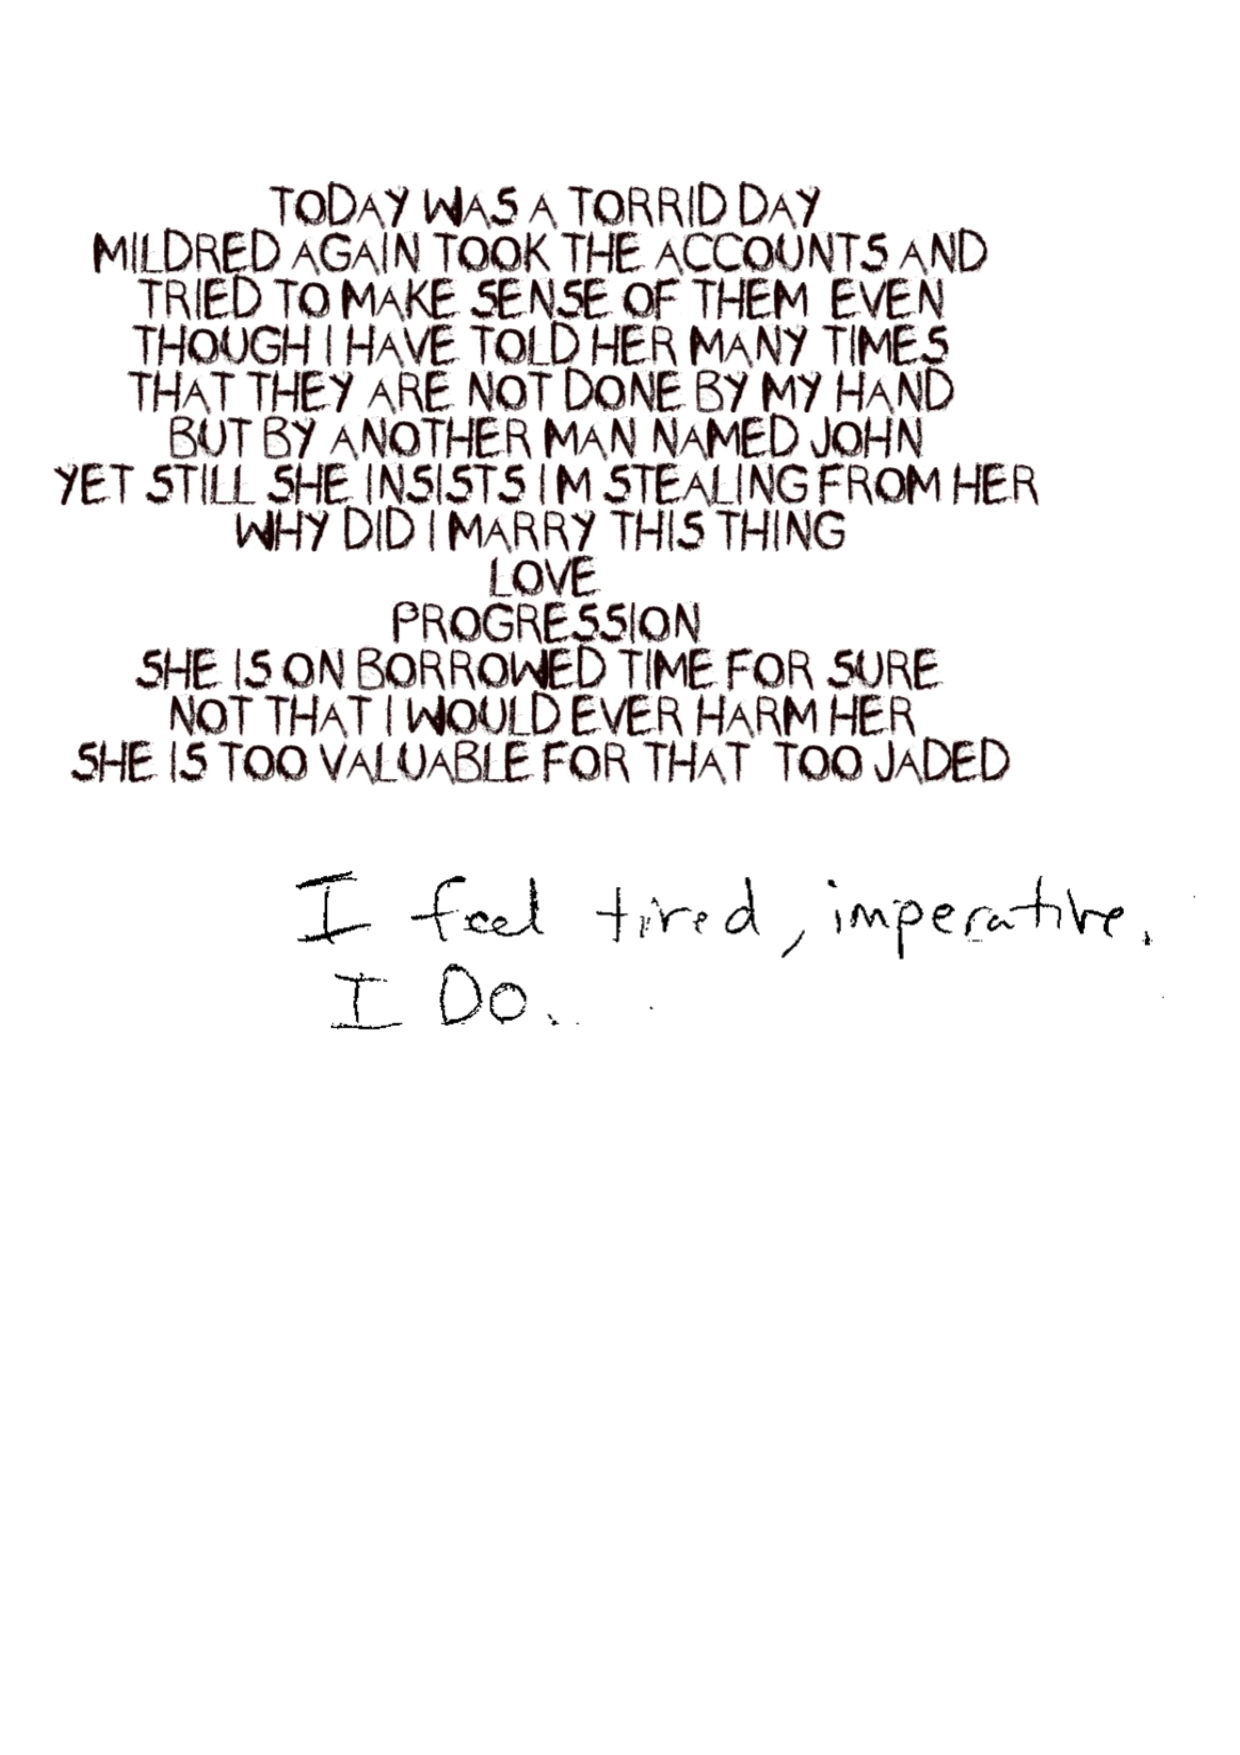 TODAY WAS A TORRID DAY
MILDRED AGAIN TOOK THE ACCOUNTS AND
TRIED TO MAKE SENSE OF THEM EVEN
THOUGH I HAVE TOLD HER MANY TIMES
THAT THEY ARE NOT DONE BY MY HAND
BUT BY ANOTHER MAN NAMED JOHN
YET STILL SHE INSISTS IM STEALING FROM HER
WHY DID I MARRY THIS THING
LOVE
PROGRESSION
SHE IS ON BORROWED TIME FOR SURE
NOT THAT I WOULD EVER HARM HER
SHE IS TOO VALUABLE FOR THAT TOO JADED
I feel tired, imperative.
I Do.